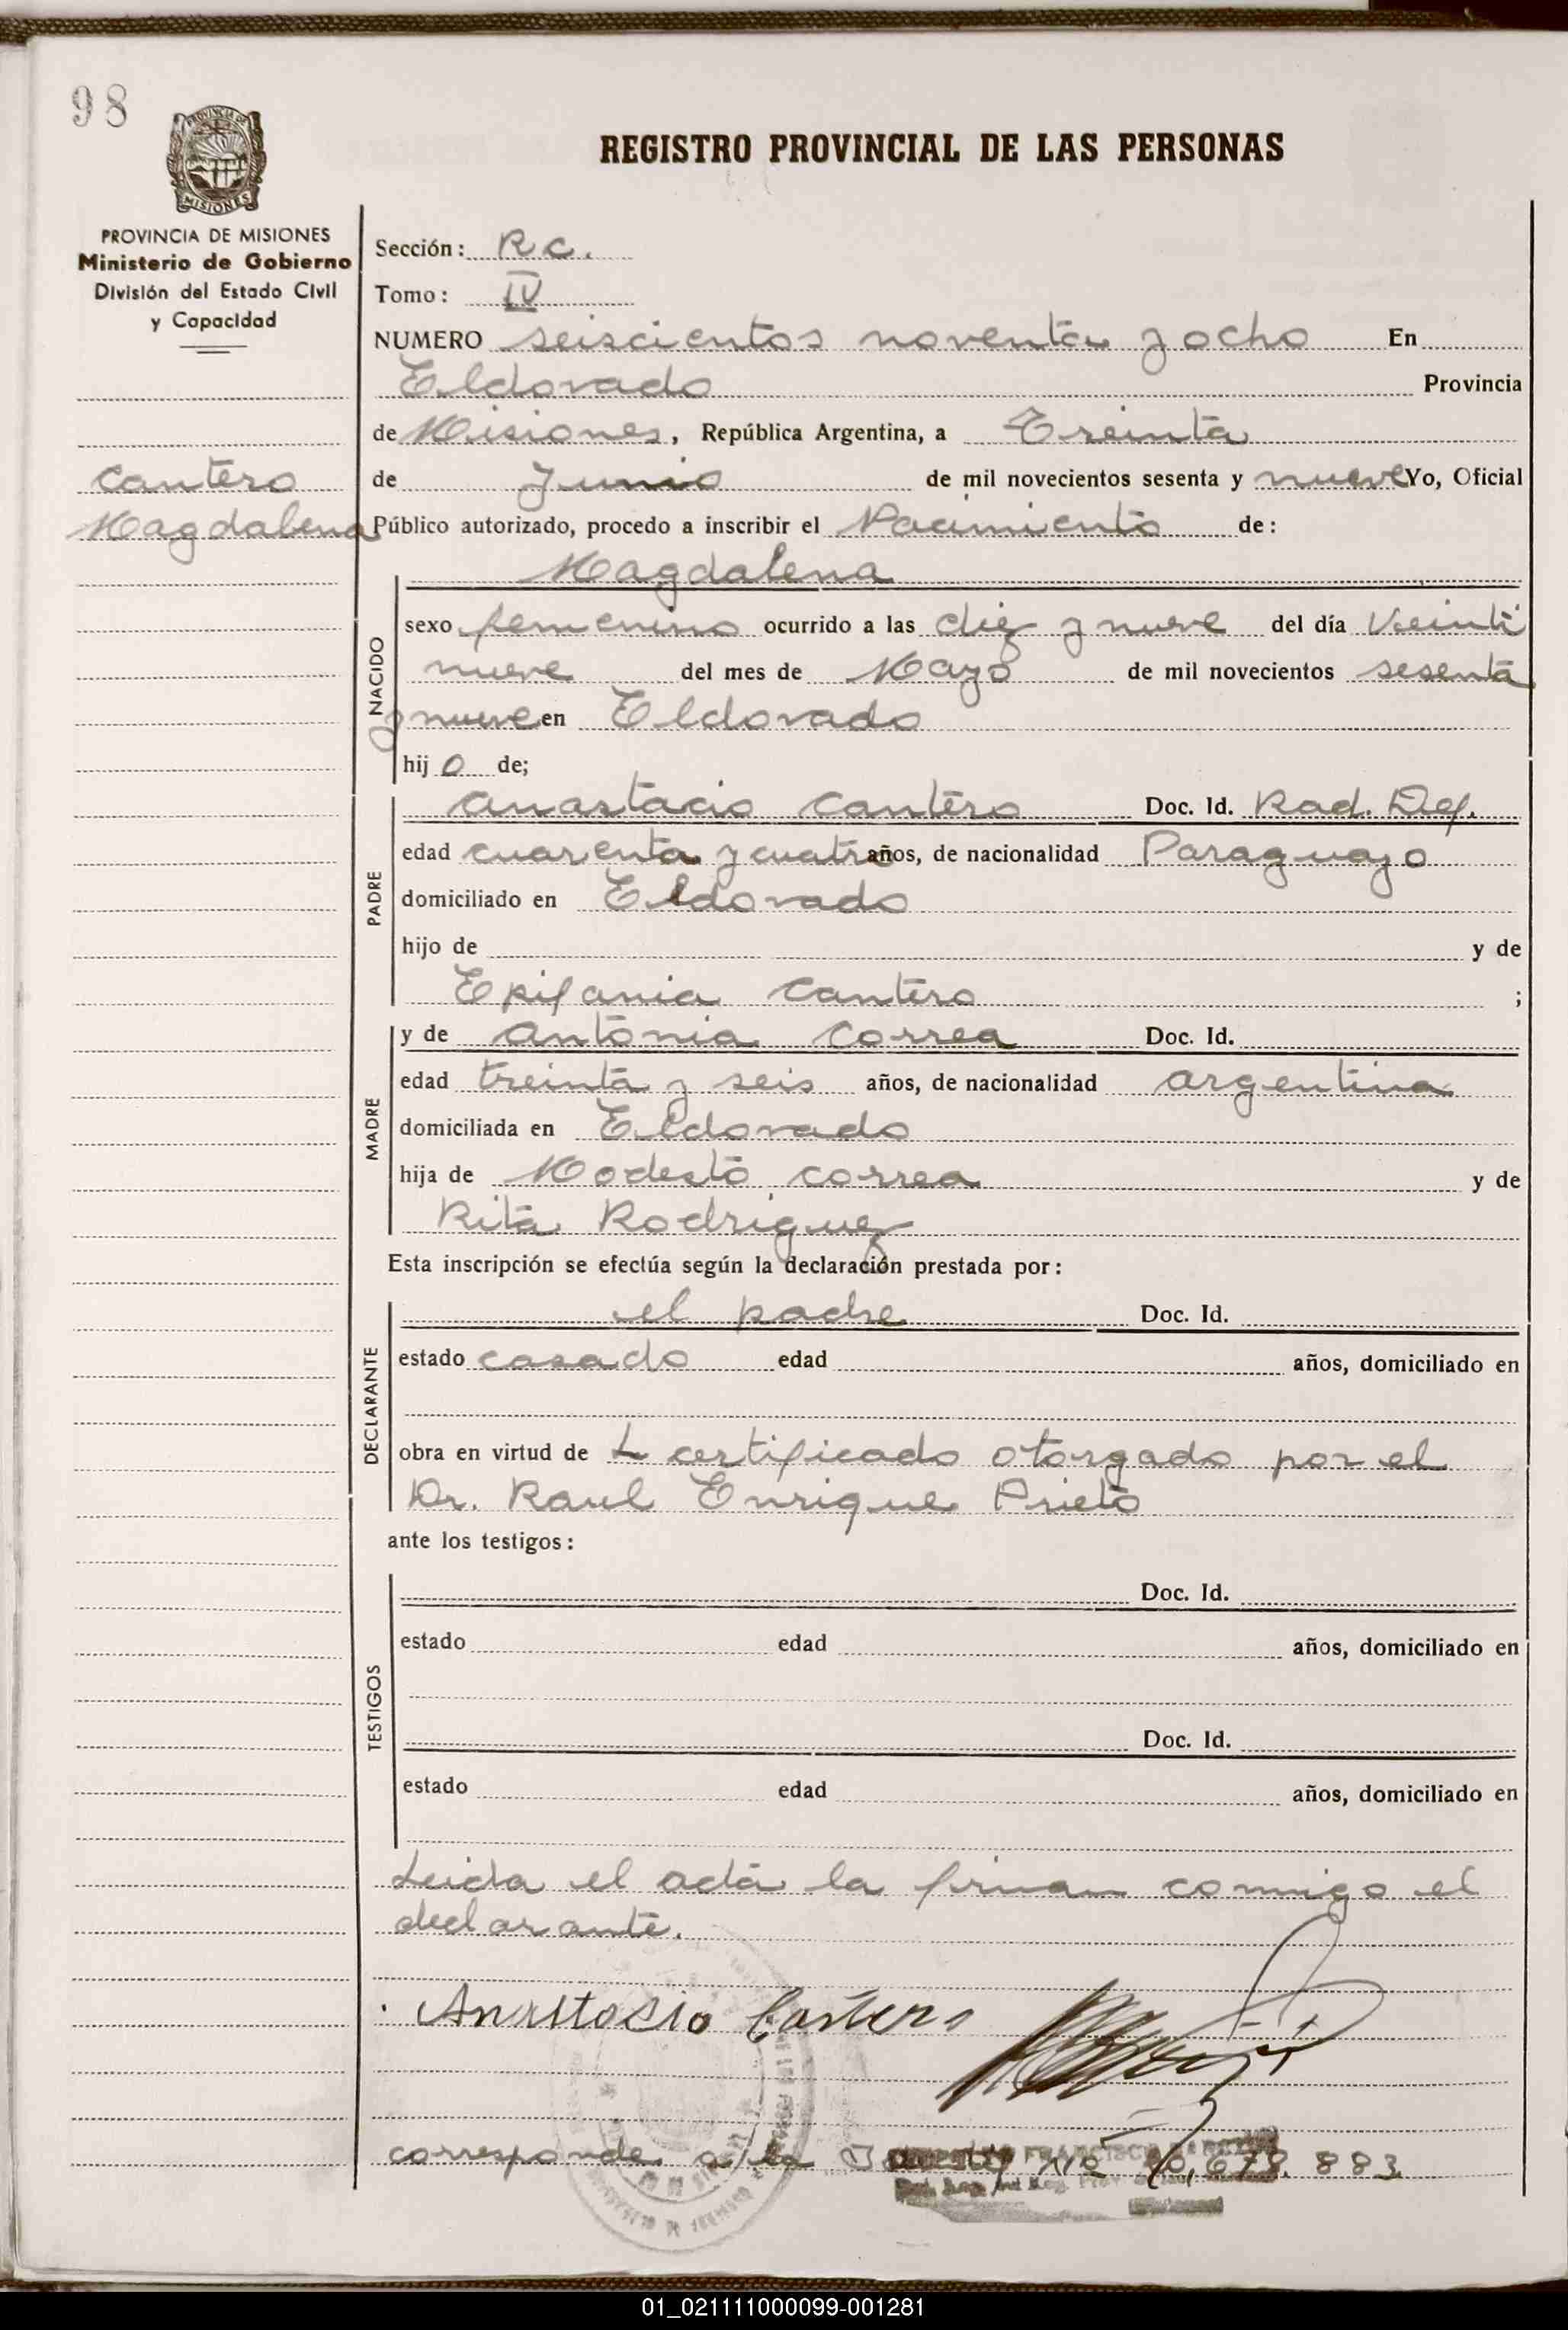 98
PROVINCIA DE
MISIONES
REGISTRO PROVINCIAL DE LAS PERSONAS
PROVINCIA DE MISIONES
Ministerio de Gobierno
División del Estado Civil
y Capacidad
Cantero
Magdalena
Sección: Rc.
Tomo: IV
NUMERO seiscientos noventa y ocho En
Eldorado Provincia
de Misiones, República Argentina, a Treinta
de Junio de mil novecientos sesenta y nueve Yo, Oficial
Público autorizado, procedo a inscribir el Nacimiento de:
Magdalena
NACIDO
sexo femenino ocurrido a las diez y nueve del día Veinti
nueve del mes de Mayo de mil novecientos sesenta
y nueve en Eldorado
hij o de;
PADRE
Anastacio Cantero Doc. Id. Rad. Def.
edad cuarenta y cuatro años, de nacionalidad Paraguayo
domiciliado en Eldorado
hijo de y de
Epifania Cantero ;
MADRE
y de Antonia Correa Doc. Id.
edad treinta y seis años, de nacionalidad argentina
domiciliada en Eldorado
hija de Modesto Correa y de
Rita Rodriguez
Esta inscripción se efectúa según la declaración prestada por:
DECLARANTE
el padre Doc. Id.
estado casado edad años, domiciliado en
obra en virtud de L certificado otorgado por el
Dr. Raul Enrique Prieto
ante los testigos:
TESTIGOS
Doc. Id.
estado edad años, domiciliado en
Doc. Id.
estado edad años, domiciliado en
Leida el acta la firman conmigo el
declarante.
Anastacio Cantero
corresponde a la
FRANCISCO
883
01_021111000099-001281